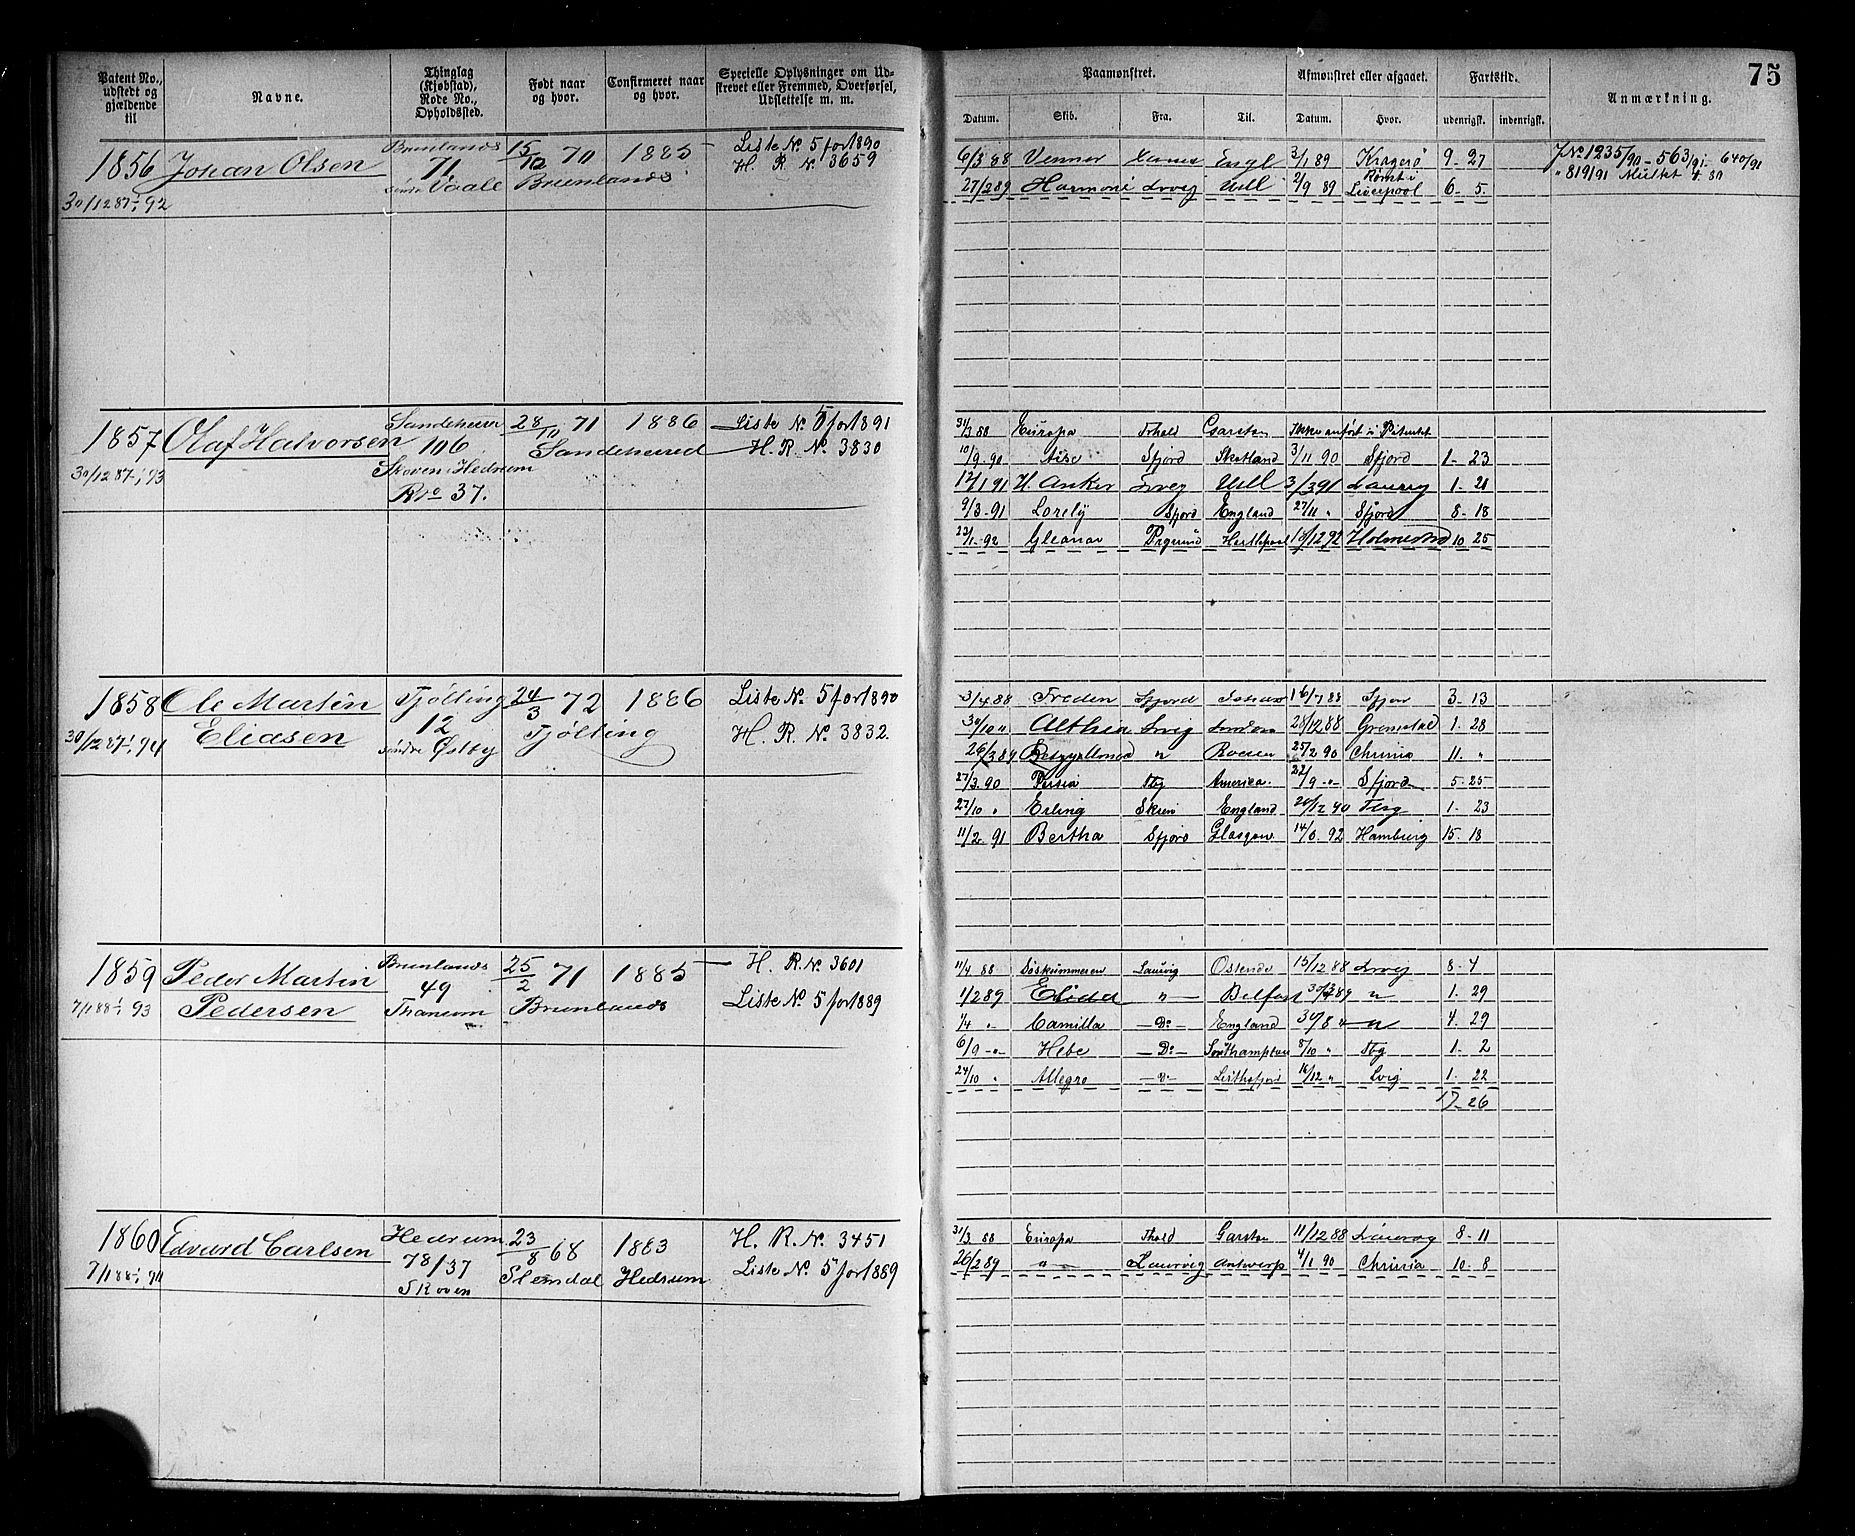 75
Patent No., udstedt og gjældende til
Navne.
Thinglag (Kjøbstad), Rode No., Opholdssted.
Født naar og hvor.
Confirmeret naar og hvor.
Specielle Oplysninger om Udskrevet eller Fremmed, Overførsel, Udslettelse m. m.
Paamønstret.
Afmønstret eller afgaaet.
Fartstid.
Anmærkning.
Datum. Skib. Fra. Til. Datum. Hvor. udenrigsk. indenrigsk.
1856 Johan Olsen Brunlands 71 søndre Vaale 15/12 70 Brunlands 1885
30/12 87 - 1/1 92
Liste No 5 for 1890
H. R. No 3659
6/3 88 Vennor Engl 3/1 89 Kragerø 9 - 27
27/2 89 Harmoni Lrvig Hull 2/9 89 Rømt i Liverpool 6 - 5
J No 1235/90 - 563/91 - 640/91
" 819/91 Mulkt
1857 Olaf Halvorsen Sandeherred 106 Skoven i Hedrum Rno 37. 28/10 71 Sandeherred 1886
30/12 87 - 1/1 93
Liste No 5 for 1891
H. R. No 3830
31/3 88 Europa Thold Garston Ikke anført i Patentet
10/9 90 Sfjord Skotland 3/11 90 Sfjord 1 - 23
12/1 91 H. Anker Lrvg Hull 3/3 91 Laurvg 1 - 21
9/3 - 91 Lorely Sfjord England 27/11 " Sfjord 8 - 18
23/1 - 92 Gleanor Prgrund Hartlepool 10/12 92 Holmestrd 10 25
1858 Ole Martin Eliasen Tjølling 12 søndre Østby 24/3 72 Tjølling 1886
30/12 87 - 1/1 94
Liste No 5 for 1890
H. R. No 3832.
3/4 88 Freden Sfjord 16/7 88 Sfjor 3 - 13
30/10 " Althea Lrvig London 28/12 88 Grimstad 1 - 28
26/3 89 " Rouen 25/2 90 Chrinia 11 - "
27/3 90 Persia Tbg America 22/9 - " Sfjord 5 - 25
27/10 " Erling Skien England 20/12 90 1 - 23
11/2 91 Bertha Sfjord Glasgow 14/6 92 Hamburg 15 - 18
1859 Peder Martin Pedersen Brunlands 49 Thaneum 25/2 71 Brunlands 1885
7/1 88 - 1/1 93
H. R. No 3601
Liste No 5 for 1889
11/4 88 Søskummeren Laurvig Ostende 15/12 88 Lrvig 8 - 4
1/2 89 Elida " - Belfast 89 " 1 - 29
1/4 " Camilla - Do - England 30/8 " - " 4 - 29
6/9 - " Hebe - Do - Southampton 8/10 " Tbg 1 - 2
24/10 " Allegro - " - 16/12 " Lvig 1 22
17 - 26
1860 Edvard Carlsen Hedrum 78/37 Skoven 23/8 68 Slemdal 1883 Hedrum
7/1 88 - 1/1 94
H. R. No 3451
Liste No 5 for 1889
31/3 88 Europa Thold Garston 11/12 88 8 - 11
26/2 89 " - Laurvig Antwerp 4/1 90 Chrinia 10 - 8